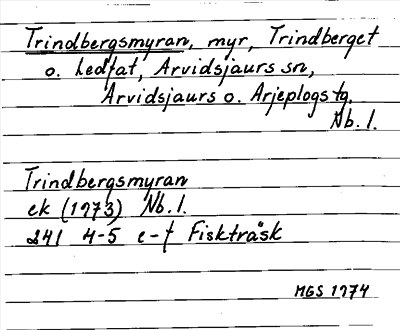 Trindbergsmyran, myr, Trindberget
o. Ledfat, Arvidsjaurs sn,
Arvidsjaurs o. Arjeplogs tg.
Nb. l.
Trindbergsmyran
ek (1973) Nb. l.
241 4-5 e-f Fiskträsk
MGS 1974